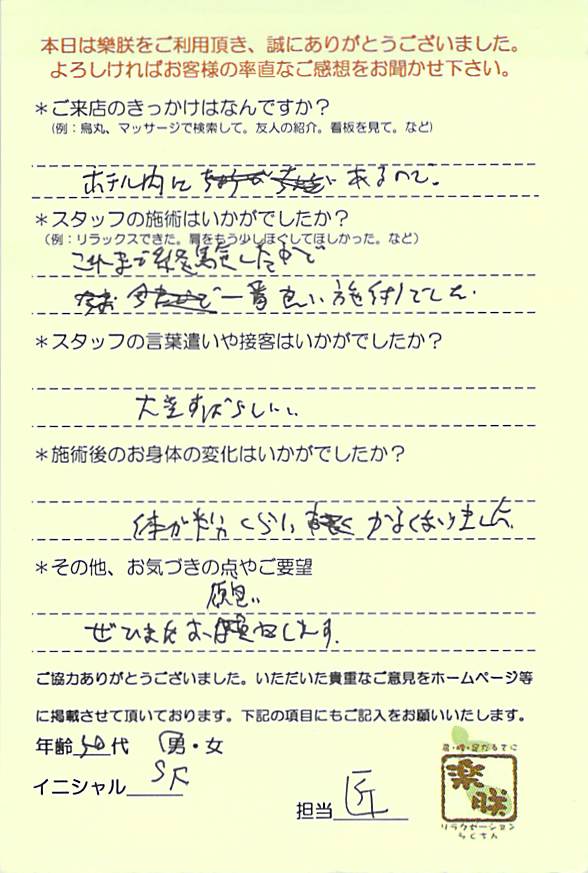 本日は樂朕をご利用頂き、誠にありがとうございました。
よろしければお客様の率直なご感想をお聞かせ下さい。
＊ご来店のきっかけはなんですか？
（例：烏丸、マッサージで検索して。友人の紹介。看板を見て。など）
ホテル内に あるので。
＊スタッフの施術はいかがでしたか？
（例：リラックスできた。肩をもう少しほぐしてほしかった。など）
これまで経験した中で
一番良い施術でした.
＊スタッフの言葉遣いや接客はいかがでしたか？
大変すばらしい。
＊施術後のお身体の変化はいかがでしたか？
体が くらい かるくなりました.
＊その他、お気づきの点やご要望
願い
ぜひまたお願いします.
ご協力ありがとうございました。いただいた貴重なご意見をホームページ等
に掲載させて頂いております。下記の項目にもご記入をお願いいたします。
年齢50代 男・女
イニシャル SK
担当 匠
肩・腰・足かるてに
楽朕
リラクゼーション
らくちん